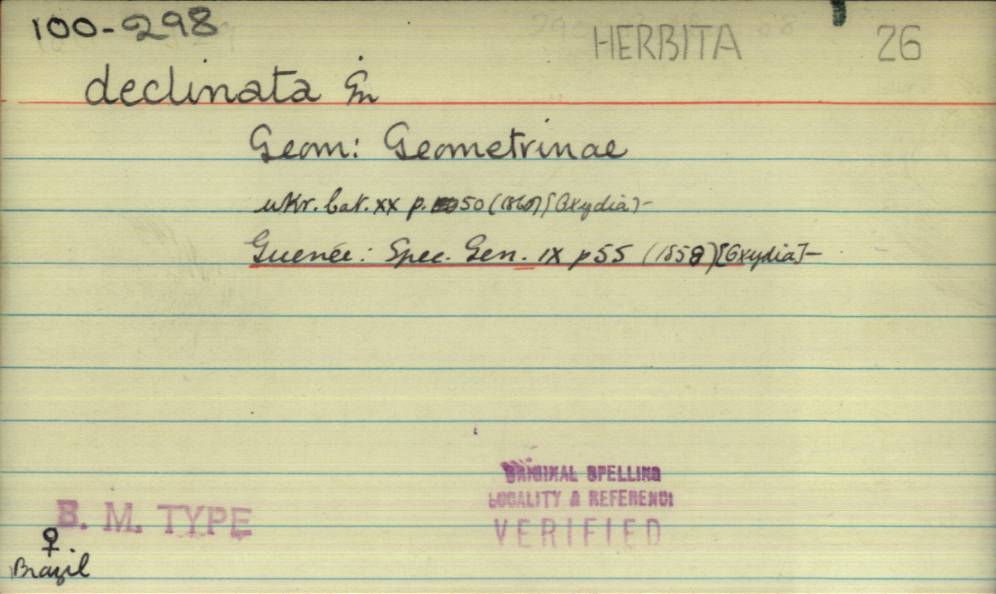 100-298
HERBITA 26
declinata Gn
Geom: Geometrinae
wkr. bat. xx p. 50 (1860) [Oxydia]-
Guenée: Spec. Gen. IX p55 (1858) [Oxydia]-
ORIGINAL SPELLING
LOCALITY & REFERENCE
VERIFIED
B. M. TYPE
♀
Brazil